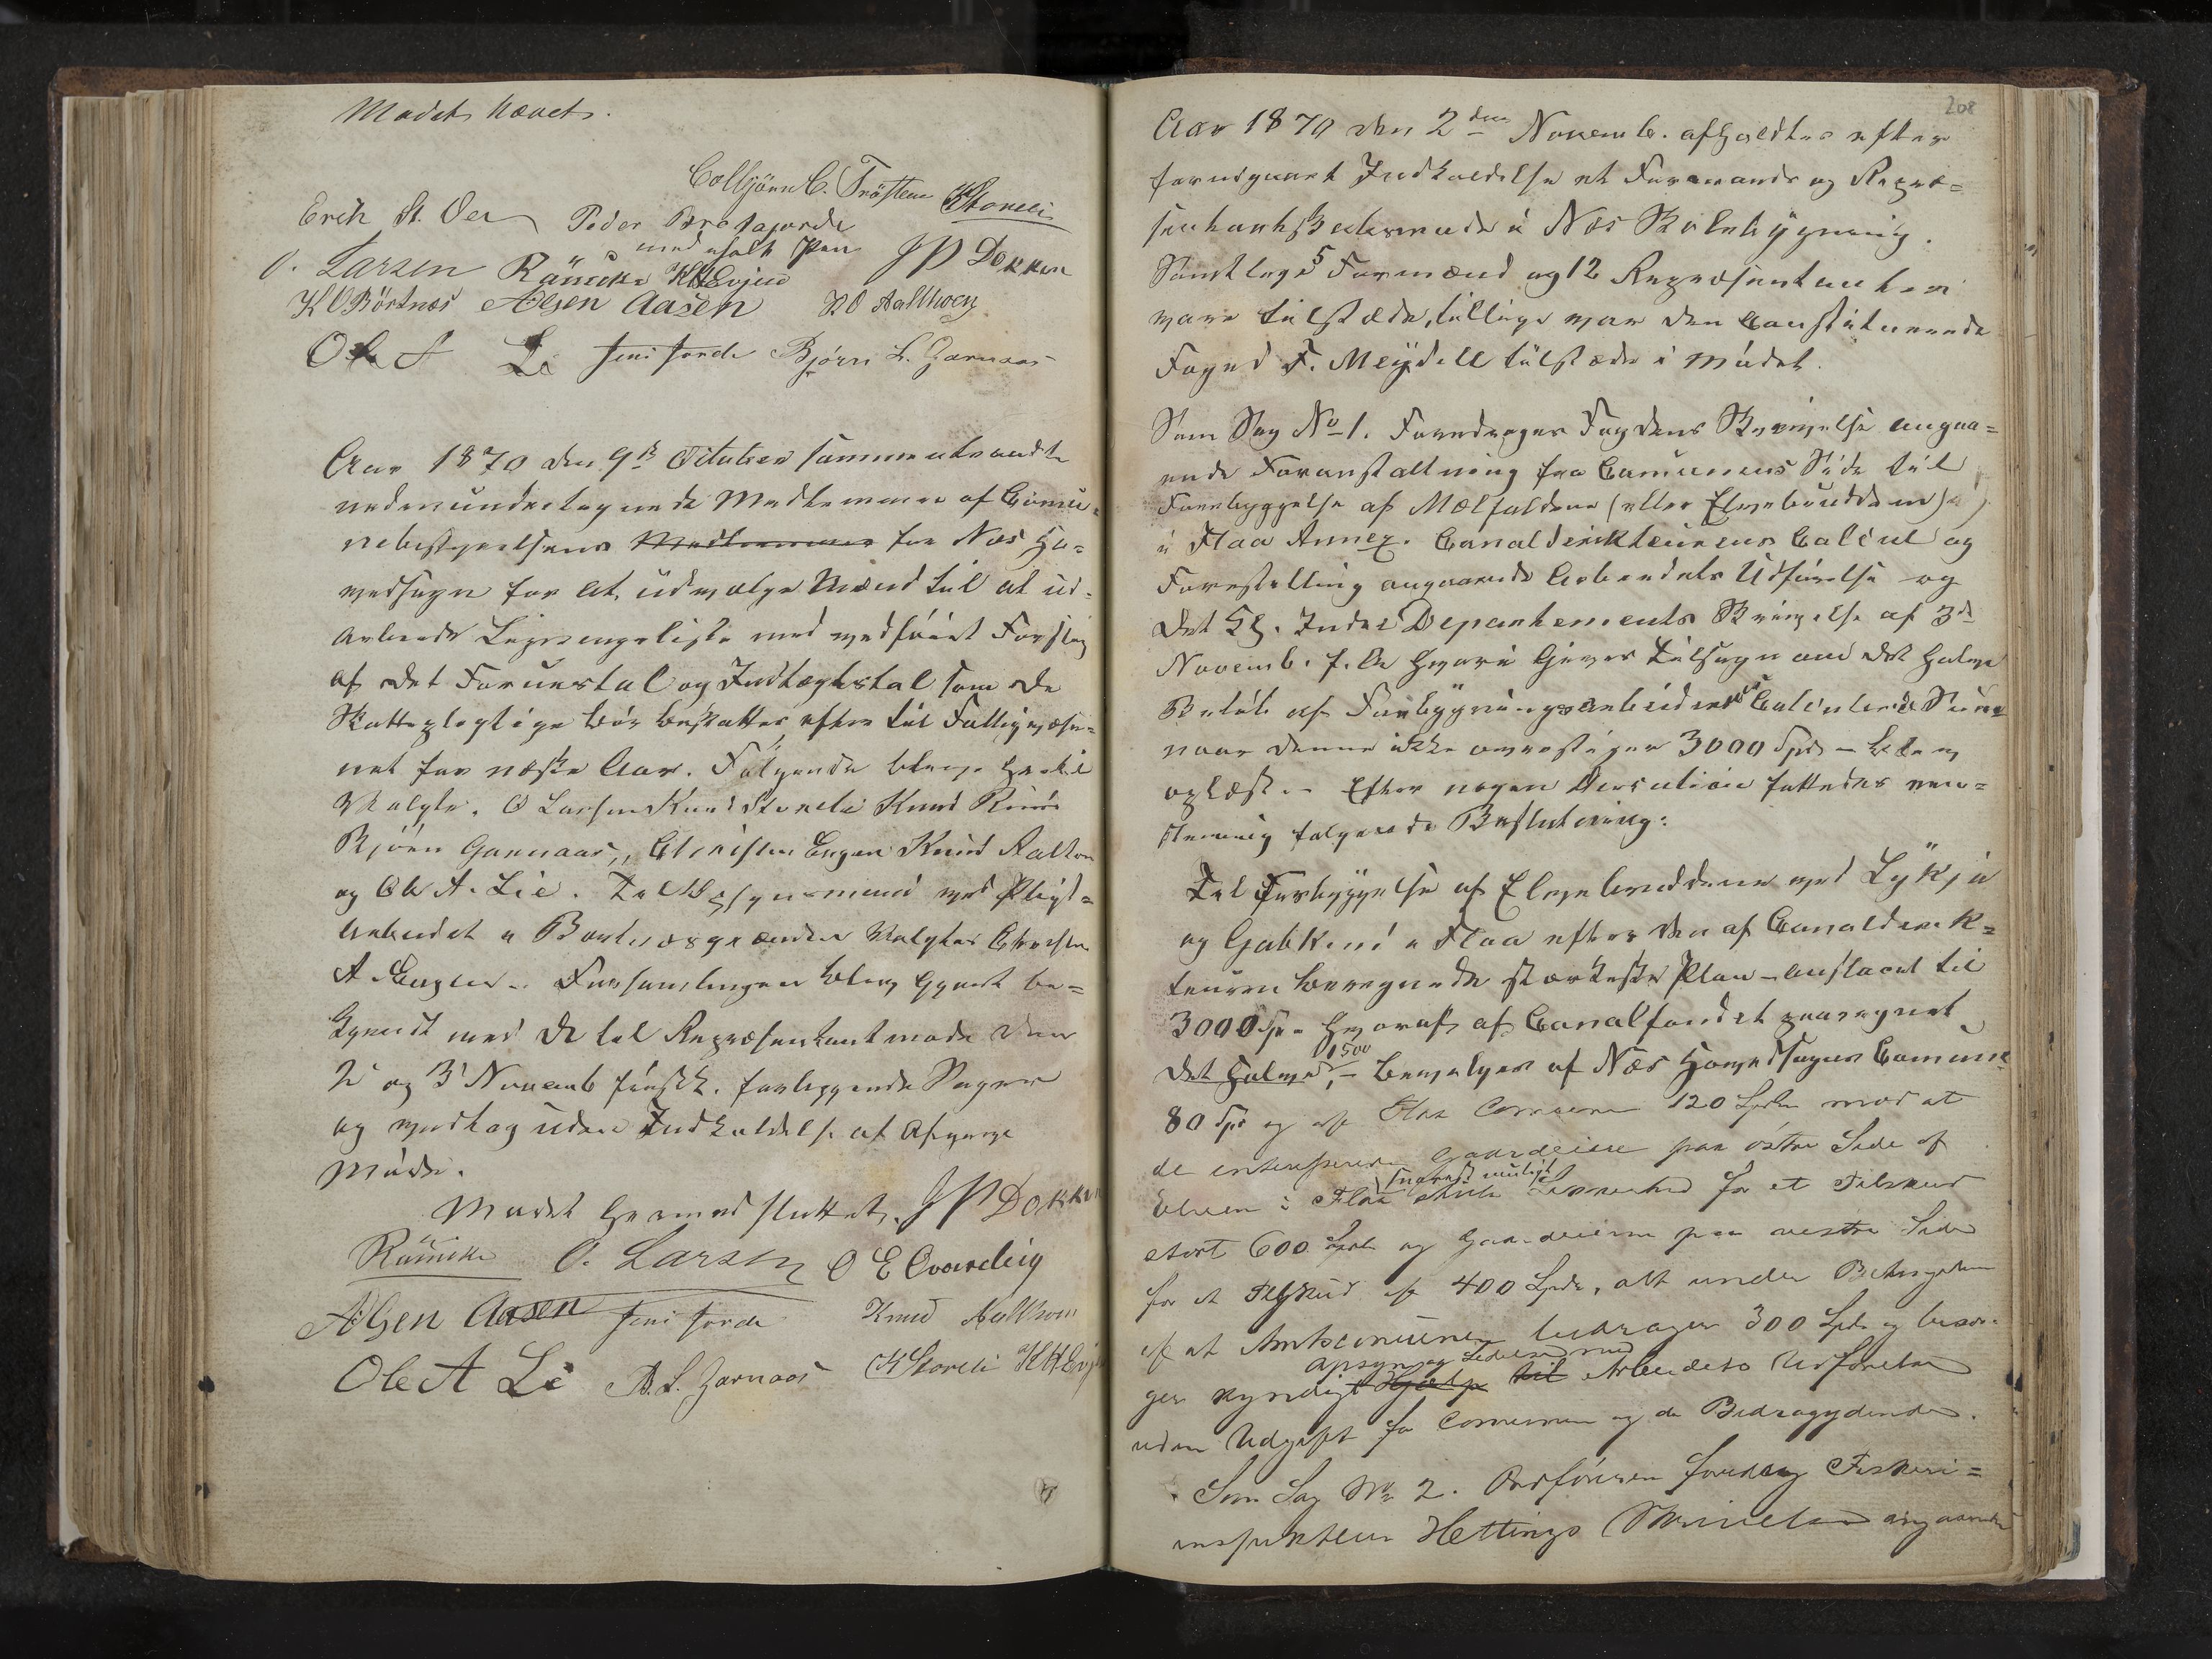 Mødet hævet.
Colbjørn C. Trøstem KStoveli
Erik St. Oen Peder Bratajorde
med paaholt Pen
O. Larsen Rännicke KHEvjen JP Dokken
KOBörtnæs AOlsen Aasen KO Aalthoen
Ole A Li Jens Jorde Björn L. Garnaas
Aar 1870 den 9de October sammentraadte
nedenundertegnede Medlemmer af Comu-
nebestyrelsens Medlemmer for Næs Ho-
vedsogn for at udvælge Mænd til at ud-
arbeide Ligningsliste med vedføiet Forslag
af det Formuestal og Indtægtstal som de
Skattepligtige bør beskattes efter til Fattigvæse-
net for næste Aar. Følgende bleve hertil
Valgte. O Larsen Knud Stoveli Knud Ruud
Bjørn Garnaas, Christen Engen Knud Aalton
og Ole A. Lie. Til Opsynsmand ved Pligt-
arbeidet i Bortnæsgrænden Valgtes Christen
A. Engen. Forsamlingen blev gjort be-
kjendt med de til Repræsentantmøde den
2 og 3 November førstk. foreliggende Sager
og vedtog uden Indkaldelse at afgive
Møde.
Mødet hermed sluttet. JP Dokken
Rännicke O. Larsen O E Oværdeig
AOlsen Aasen Jens Jorde Knud Aalthoen
Ole A Li B. L. Garnaas KStoveli KHEvje
208
Aar 1870 den 2den Novemb. afholdtes efter
forudgaaet Indkaldelse et Formands og Repræ-
sentantskabsmøde i Næs Skolebygning.
Samtlige 5 Formænd og 12 Repræsentanter
vare tilstæde, tillige var den Constituerede
Foged F. Meÿdell tilstæde i mødet.
Som Sag No 1. Foredroges Fogdens Skrivelse angaa-
ende Foranstaltning fra Comunens Side til
Forebyggelse af Mælfaldene (eller Elvebruddene)
i Flaa Annex. Canaldirekteurens Calcul og
Forestilling angaaende Arbeidets Udførelse og
det Kgl. Indre Departements Skrivelse af 3de
Novemb. f. A. hvori gives Tilsagn om det halve
Beløb af Forbygningsarbeidernes Calculerede Sum
naar denne ikke overstiger 3000 Spd – blev
oplæst. – Efter nogen Discution fattedes een-
stemmig følgende Beslutning:
Til Forbyggelse af Elvebruddene ved Lÿkja
og Gulsk i Flaa efter den af Canaldirek-
teuren beregnede stærkeste Plan – anslaaet til
3000 Sp – hvoraf af Canalfondet paaregnet
det halve, 1500 – bevilges af Næs Hovedsogns Comune
80 Spd og af Flaa Comune 120 Spdlr mod at
de interesserede Gaardeiere paa østre Side af
Elven i Flaa snarest muligt stille Sikkerhed for et Tilskud
stort 600 Spdlr og Gaardeierne paa vestre Side
for et Tilskud af 400 Spdlr, alt under Betingelse
af at Amtscomunen bidrager 300 Spdlr og besør-
ger kyndigt Hjælp til Opsyn og Ledelse med Arbeidets Udførelse
uden Udgift for Comunen og de Bidragydende.
Som Sag No 2. Ordføreren foredrog Fiskeri-
inspekteur Hettings Skrivelse angaaende